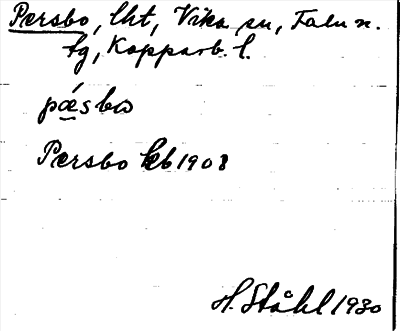 Persbo, lht, Vika sn, Falu n.
tg, Kopparb. l.
pǽsbo
Persbo kb 1908
H. Ståhl 1930